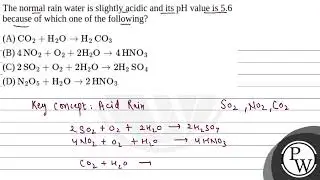 The normal rain water is slightly acidic and its pH value is 5.6
because of which one of the following?
(A) CO₂ + H₂O → H₂ CO₃
(B) 4 NO₂ + O₂ + 2H₂O → 4 HNO₃
(C) 2 SO₂ + O₂ + 2H₂O → 2H₂ SO₄
(D) N₂O₅ + H₂O → 2 HNO₃
Key concept: Acid Rain SO₂, NO₂, CO₂
2 SO₂ + O₂ + 2H₂O → 2H₂SO₄
4NO₂ + O₂ + H₂O → 4HNO₃
CO₂ + H₂O →
PW